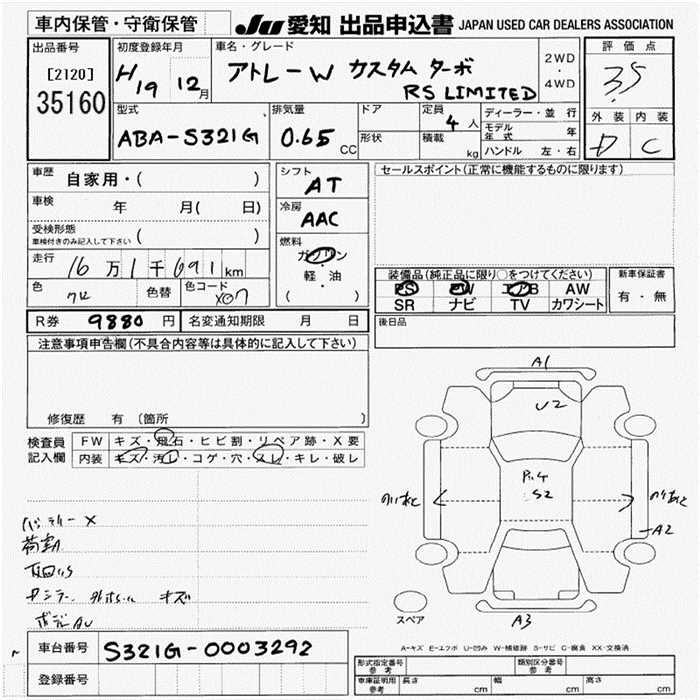 車内保管・守衛保管
JU 愛知 出品申込書 JAPAN USED CAR DEALERS ASSOCIATION
出品番号
[2120]
35160
初度登録年月
H19 12月
車名・グレード
アトレーW カスタム ターボ
RS LIMITED
2WD
・
4WD
評価点
3.5
外装 内装
D C
型式
ABA-S321G
排気量
0.65 CC
ドア
形状
定員
4人
積載
kg
ディーラー・並行
モデル年式 年
ハンドル 左・右
車歴 自家用・( )
車検 年 月( 日)
受検形態
車検付きのみ記入して下さい ( )
走行 16万1千691km
色
色替
色コード
X07
シフト
AT
冷房
AAC
燃料
ガソリン
・
軽・油
( )
セールスポイント(正常に機能するものに限ります)
装備品(純正品に限り○をつけてください)
PS PW エアB AW
SR ナビ TV カワシート
新車保証書
有・無
後日品
R券 9880円 名変通知期限 月 日
注意事項申告欄(不具合内容等は具体的に記入して下さい)
修復歴 有 (箇所 )
検査員
記入欄
FW キズ・飛石・ヒビ割・リペア跡・X要
内装 キズ・汚レ・コゲ・穴・スレ・キレ・破レ
バッテリーX
キズ
A1
U2
S2
A2
A3
スペア
A-キズ E-エクボ U-凹み W-補修跡 S-サビ C-腐食 XX-交換済
車台番号 S321G-0003292
登録番号
形式指定番号
参考
類別区分番号
参考
車庫証明用
参考
長さ cm
幅 cm
高さ cm